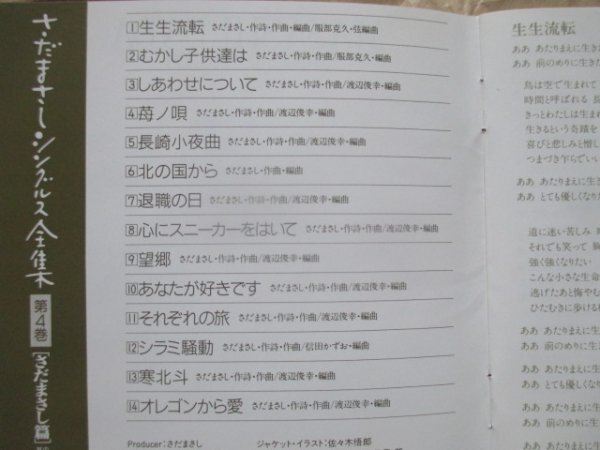 さだまさしシングルス全集
第4巻
[さだまさし篇]
1 生生流転 さだまさし・作詩・作曲・編曲/服部克久・弦編曲
2 むかし子供達は さだまさし・作詩・作曲/服部克久・編曲
3 しあわせについて さだまさし・作詩・作曲/渡辺俊幸・編曲
4 苺ノ唄 さだまさし・作詩・作曲/渡辺俊幸・編曲
5 長崎小夜曲 さだまさし・作詩・作曲/渡辺俊幸・編曲
6 北の国から さだまさし・作曲・編曲
7 退職の日 さだまさし・作詩・作曲/渡辺俊幸・編曲
8 心にスニーカーをはいて さだまさし・作詩・作曲/渡辺俊幸・編曲
9 望郷 さだまさし・作詩・作曲/渡辺俊幸・編曲
10 あなたが好きです さだまさし・作詩・作曲/渡辺俊幸・編曲
11 それぞれの旅 さだまさし・作詩・作曲/渡辺俊幸・編曲
12 シラミ騒動 さだまさし・作詩・作曲/信田かずお・編曲
13 寒北斗 さだまさし・作詩・作曲/渡辺俊幸・編曲
14 オレゴンから愛 さだまさし・作詩・作曲/渡辺俊幸・編曲
Producer:さだまさし ジャケット・イラスト:佐々木悟郎
生生流転
ああ あたりまえに生きた
ああ 前のめりに生き
鳥は空で生まれて
時間と呼ばれる
きっとわたしは生まれ
生きるという奇蹟を
喜びと悲しみと憎し
つまづき乍らでいい
ああ あたりまえに生
ああ とても優しくなり
道に迷い苦しみ
それでも笑って
強く強くなりたい
こんな小さな生命
逃げたあと悔やむ
ひたむきに歩ける
ああ あたりまえに生
ああ 前のめりに生
ああ あたりまえに生
ああ とても優しくな
ああ あたりまえに生
ああ 前のめりに生
ああ あたりまえに